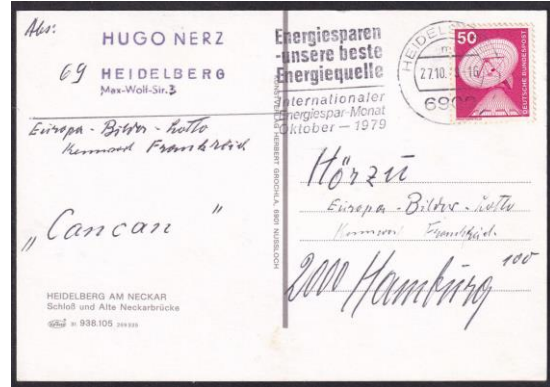 Abs:
HUGO NERZ
69 HEIDELBERG
Max-Wolf-Str.3
Europa - Bilder - Lotto
Kennwort Frankreich
„Cancan"
HEIDELBERG AM NECKAR
Schloß und Alte Neckarbrücke
938.105
KUNSTVERLAG HERBERT GROCHLA, 6901 NUSSLOCH
Energiesparen
-unsere beste
Energiequelle
Internationaler
Energiespar-Monat
Oktober – 1979
HEIDELB
27.10.
50
DEUTSCHE BUNDESPOST
Hörzu
Europa - Bilder - Lotto
Kennwort Frankreich
2000 Hamburg 100